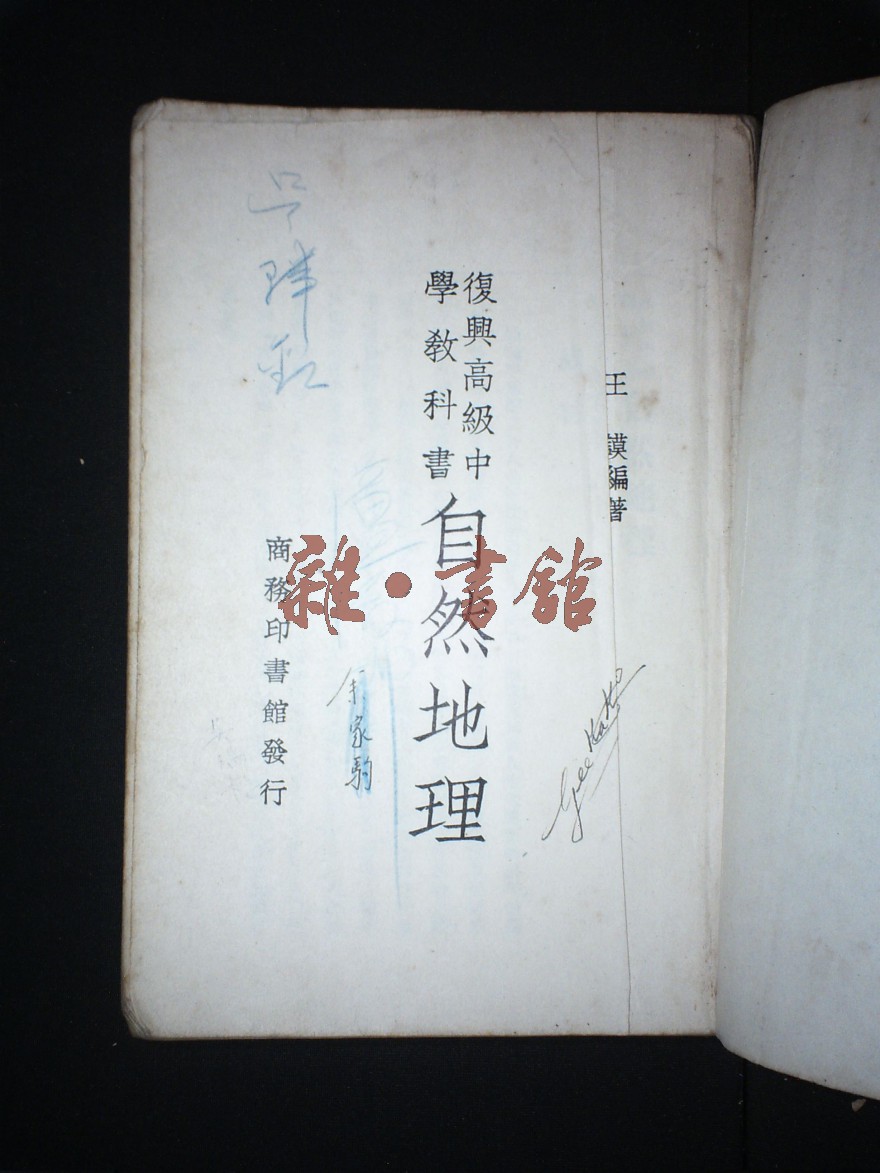 王 謨編著
復興高級中
學教科書
自然地理
余家駒
商務印書館發行
雜·書館